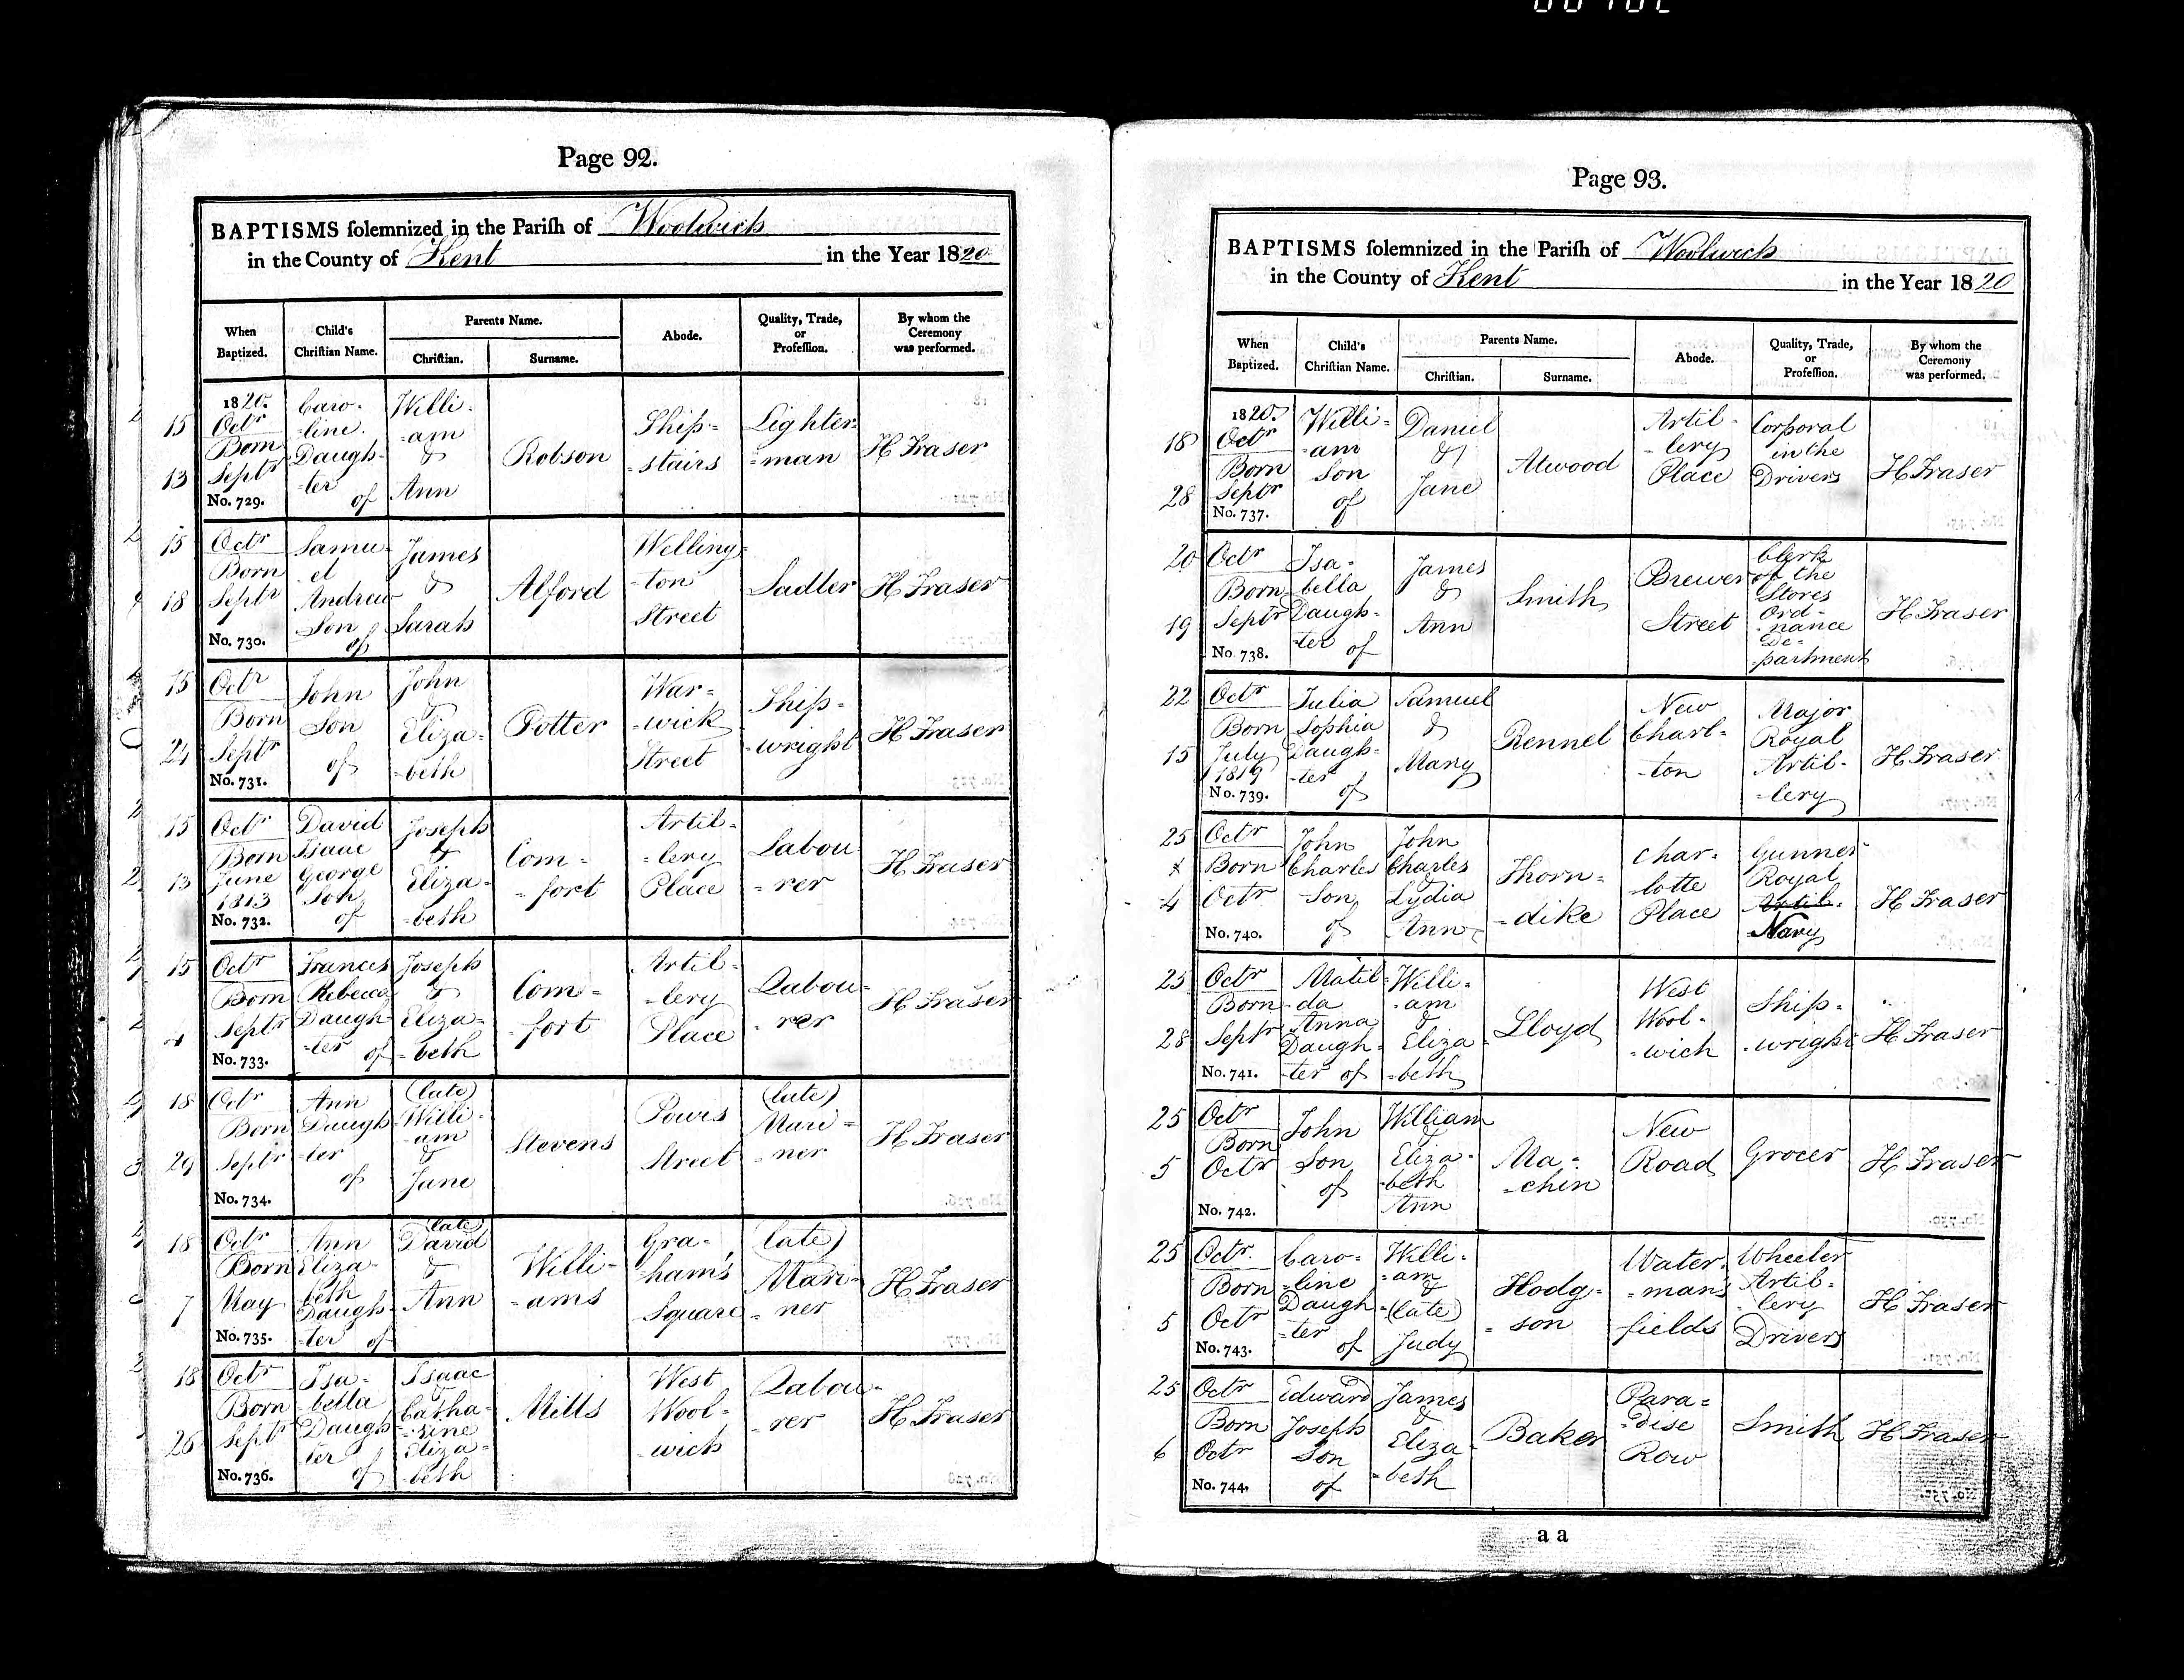 Page 92.
BAPTISMS solemnized in the Parish of Woolwich
in the County of Kent in the Year 1820.
When Baptized.
Child's Christian Name.
Parents Name.
Christian.
Surname.
Abode.
Quality, Trade, or Profession.
By whom the Ceremony was performed.
15 1820. Octr Born 13 Septr No. 729.
Caro-line. Daugh-ter of
Willi-am & Ann
Robson
Ship-stairs
Lighter-man
H Fraser
15 Octr Born 18 Septr No. 730.
Samu-el Andrew Son of
James & Sarah
Alford
Welling-ton Street
Sadler
H Fraser
15 Octr Born 24 Septr No. 731.
John Son of
John & Eliza-beth
Potter
War-wick Street
Ship-wright
H Fraser
15 Octr Born 13 June 1813 No. 732.
David Isaac George Son of
Joseph & Eliza-beth
Com-fort
Artil-lery Place
Labou-rer
H Fraser
15 Octr Born 4 Septr No. 733.
Frances Rebecca Daugh-ter of
Joseph & Eliza-beth
Com-fort
Artil-lery Place
Labou-rer
H Fraser
18 Octr Born 29 Septr No. 734.
Ann Daugh-ter of
(late) Willi-am & Jane
Stevens
Powis Street
(late) Mari-ner
H Fraser
18 Octr Born 7 May No. 735.
Ann Eliza-beth Daugh-ter of
(late) David & Ann
Willi-ams
Gra-ham's Square
(late) Mari-ner
H Fraser
18 Octr Born 26 Septr No. 736.
Isa-bella Daugh-ter of
Isaac & Catha-rine Eliza-beth
Mills
West Wool-wich
Labou-rer
H Fraser
Page 93.
BAPTISMS solemnized in the Parish of Woolwich
in the County of Kent in the Year 1820
When Baptized.
Child's Christian Name.
Parents Name.
Christian.
Surname.
Abode.
Quality, Trade, or Profession.
By whom the Ceremony was performed.
18 1820. Octr Born 28 Septr No. 737.
Willi-am Son of
Daniel & Jane
Atwood
Artil-lery Place
Corporal in the Drivers
H Fraser
20 Octr Born 19 Septr No. 738.
Isa-bella Daugh-ter of
James & Ann
Smith
Brewer Street
Clerk of the Stores Ord-nance De-partment
H Fraser
22 Octr Born 15 July 1819 No. 739.
Julia Sophia Daugh-ter of
Samuel & Mary
Rennel
New Charl-ton
Major Royal Artil-lery
H Fraser
25 Octr Born 4 Octr No. 740.
John Charles Son of
John Charles & Lydia Ann
Thorn-dike
Char-lotte Place
Gunner Royal Artil- Navy
H Fraser
25 Octr Born 28 Septr No. 741.
Matil-da Anna Daugh-ter of
Willi-am & Eliza-beth
Lloyd
West Wool-wich
Ship-wright
H Fraser
25 Octr Born 5 Octr No. 742.
John Son of
William & Eliza-beth Ann
Ma-chin
New Road
Grocer
H Fraser
25 Octr. Born 5 Octr No. 743.
Caro-line Daugh-ter of
Willi-am & (late) Judy
Hodg-son
Water-man's fields
Wheeler Artil-lery Drivers
H Fraser
25 Octr Born 6 Octr No. 744.
Edward Joseph Son of
James & Eliza-beth
Baker
Para-dise Row
Smith
H Fraser
a a